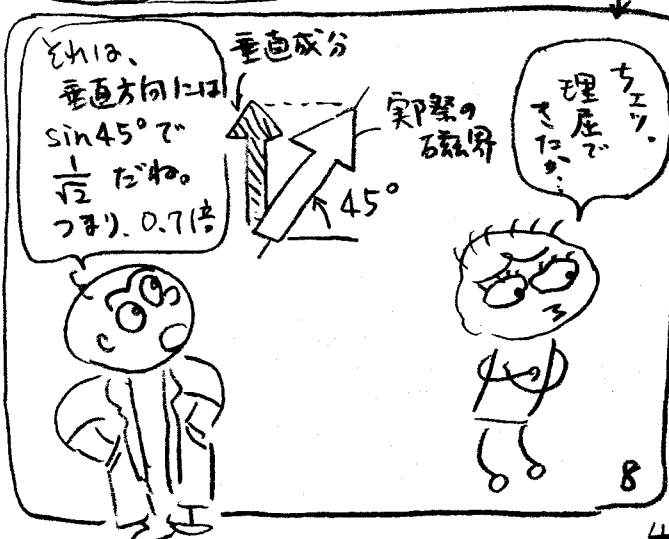 それは、
垂直方向には
sin45°で
1/√2 だね。
つまり、0.7倍
垂直成分
実際の
磁界
45°
チェッ。
理屈で
きたか…
8
4